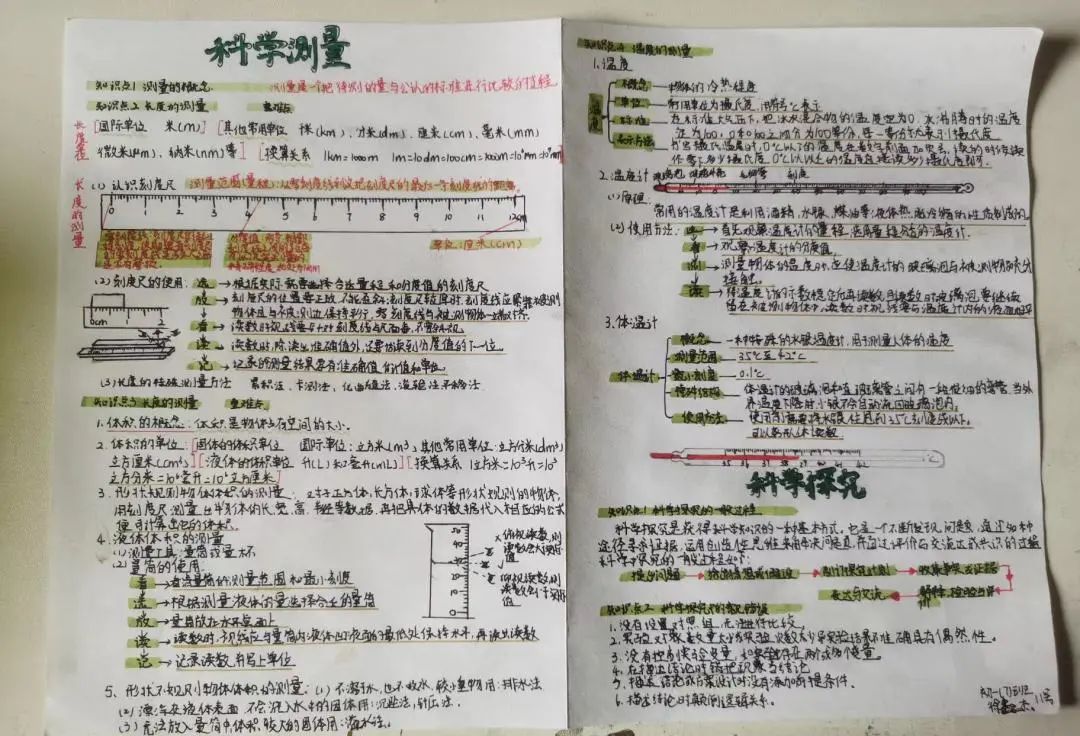 科学测量
知识点1 测量的概念 测量是一个把待测的量与公认的标准进行比较的过程
知识点2 长度的测量 重难点
长度单位
[国际单位 米(m)] [其他常用单位 千米(km)、分米(dm)、厘米(cm)、毫米(mm)
微米(μm)、纳米(nm)等] [换算关系 1km=1000m 1m=10dm=100cm=1000mm
长度的测量
(1) 认识刻度尺 测量范围(量程):
0 1 2 3 4 5 6 7 8 9 10 11 12cm
单位:厘米(cm)
(2) 刻度尺的使用: 选→根据实际需要选择合适量程和分度值的刻度尺
放→刻度尺的位置要正放,不能歪斜;刻度尺较厚时,刻度线应紧靠被测
物体且与被测边保持平行,
0cm 1 2
看→读数时视线要与刻度线尺面垂直,不要斜视
读→读数时,除读出准确值外,还要估读到分度值的下一位
记→记录的测量结果应有准确值、估计值和单位
(3) 长度的特殊测量方法 累积法、卡测法、化曲为直法、滚轮法、平移法
知识点3 体积的测量 重难点
1. 体积的概念:体积是物体占有空间的大小。
2. 体积的单位:[固体的体积单位 国际单位:立方米(m³),其他常用单位:立方分米(dm³)
立方厘米(cm³)] [液体的体积单位 升(L)和毫升(mL)] [换算关系 1立方米=10³升=10³
立方分米=10⁶毫升=10⁶立方厘米]
3. 形状规则物体体积的测量:对于正方体、长方体、球体等形状规则的物体,
用刻度尺测量出物体的长、宽、高、半径等数据,再把具体的数据代入相应的公式
便可计算出它的体积。
4. 液体体积的测量
(1) 测量工具:量筒或量杯
(2) 量筒的使用:
看→看清量筒的测量范围和最小刻度
选→根据测量液体的量选择合适的量筒
放→量筒放在水平桌面上
读→读数时,视线应与量筒内液体凹液面的最低处保持水平,再读出读数
记→记录读数,并写上单位
俯视读数,则
仰视读数,则
5. 形状不规则小物体体积的测量:(1) 不溶于水,也不吸水,较小重物用:排水法
(2) 漂浮在液体表面,不会沉入水中的固体用:沉坠法,针压法.
(3) 无法放入量筒中,体积较大的固体用:溢水法.
知识点4 温度的测量
1. 温度
温度
概念→物体的冷热程度
单位→常用单位为摄氏度,用符号℃表示
标准→在标准大气压下,把冰水混合物的温度定为0,水沸腾时的温度
定为100,0和100之间分为100等份,每一等份为表示1摄氏度
表示方法→书写摄氏温度时,0℃以下的温度在数字前面加负号,读的时候读
作零下多少摄氏度,0℃以上的温度直接读多少摄氏度即可.
2. 温度计 毛细管 刻度
(1) 原理:
常用的温度计是利用酒精、水银、煤油等液体热胀冷缩的性质制成的.
(2) 使用方法: 选→首先观察温度计的量程,选用合适的温度计.
看→观察温度计的分度值
测→测量物体的温度时,应使温度计的玻璃泡与被测物体充分
接触.
读→待温度计的示数稳定后再读数,且读数时玻璃泡要继续
留在被测物体中,读数时视线要与温度计内的液面相平
3. 体温计
体温计
概念→一种特殊的水银温度计,用于测量人体的温度
测量范围→35℃至42℃
最小刻度→0.1℃
特殊结构→体温计的玻璃泡和直玻璃管之间有一段很细的弯管,当外
界温度下降时,水银不会自动流回玻璃泡内.
使用方法→使用前需要将水银柱甩到35℃刻度线以下.
可以离开人体读数
35 36 37 38 39 40 41 42 ℃
科学探究
知识点1 科学探究的一般过程
科学探究是获得科学知识的一种基本方式,也是一个不断发现问题,通过多种
途径寻求证据,运用创造性思维来解决问题,并通过评价与交流达成共识的过程.
科学探究的一般过程如下:
提出问题→建立猜想或假设→制订探究计划→收集事实与证据
表达与交流←解释、检验与评价
知识点2 科学探究的常见错误
1. 没有设置对照组,无法进行比较.
2. 实验对象数量太少或实验次数太少导致实验结果不准确,具有偶然性.
3. 没有控制实验变量,实验存在两个或多个变量.
4. 在描述结论时错把现象当结论.
5. 描述结论或方案设计时没有添加前提条件.
6. 描述结论时颠倒逻辑关系.
11号